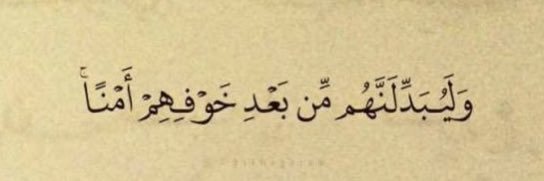 وَلَيُبَدِّلَنَّهُم مِّن بَعْدِ خَوْفِهِمْ أَمْنًاۚ